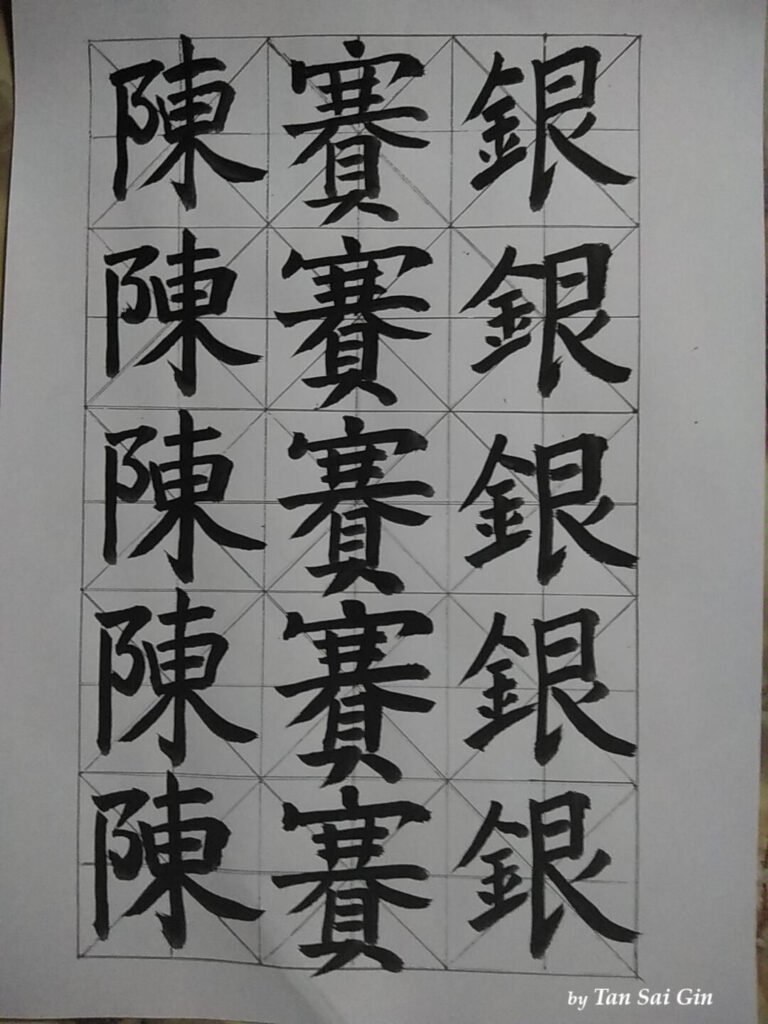 陳賽銀
陳賽銀
陳賽銀
陳賽銀
陳賽銀
by Tan Sai Gin